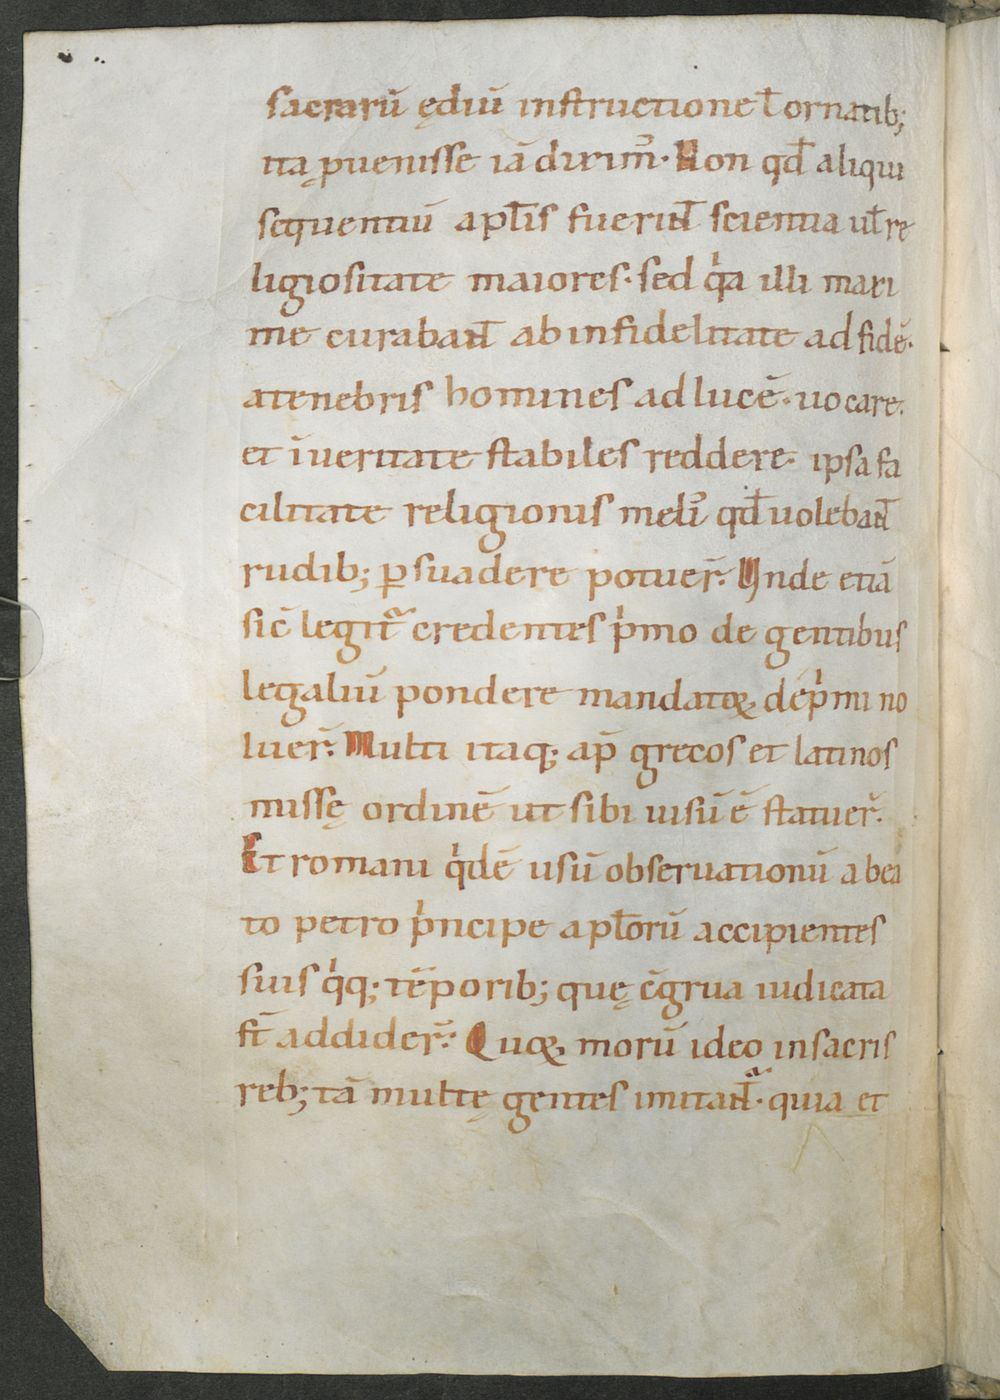 sacrarū ędiū instructione ł ornatib;
ita ꝓuenisse iā diximꝰ. Non qđ aliqui
sequentiū apłis fueriNt̄ scientia uł re
ligiositate maiores. sed qͥa illi maxi
me curabaNt̄ ab infidelitate ad fidē.
a tenebris homines ad lucē. uocare.
et ī ueritate stabiles reddere. ipsa fa
cilitate religionis meliꝰ qđ uolebaNt̄
rudib; ꝑsuadere potuer̄. Unde etiā
sic̄ legit᷑ credentes pͥmo de gentibus
legaliū pondere mandatoꝝ dep̄ͥmi no
luer̄. Multi itaq; ap̄ grecos et latinos
missę ordinē ut sibi uisū ē̄ statuer̄.
Et romani qͥdē usū obseruationū a bea
to petro pͥncipe apłorū accipientes
suis qͥq; tēporib; quę c̄grua iudicata
st̄ addider̄. Quoꝝ morū ideo in sacris
reb; tā multę gentes imitaNt᷑. quia et